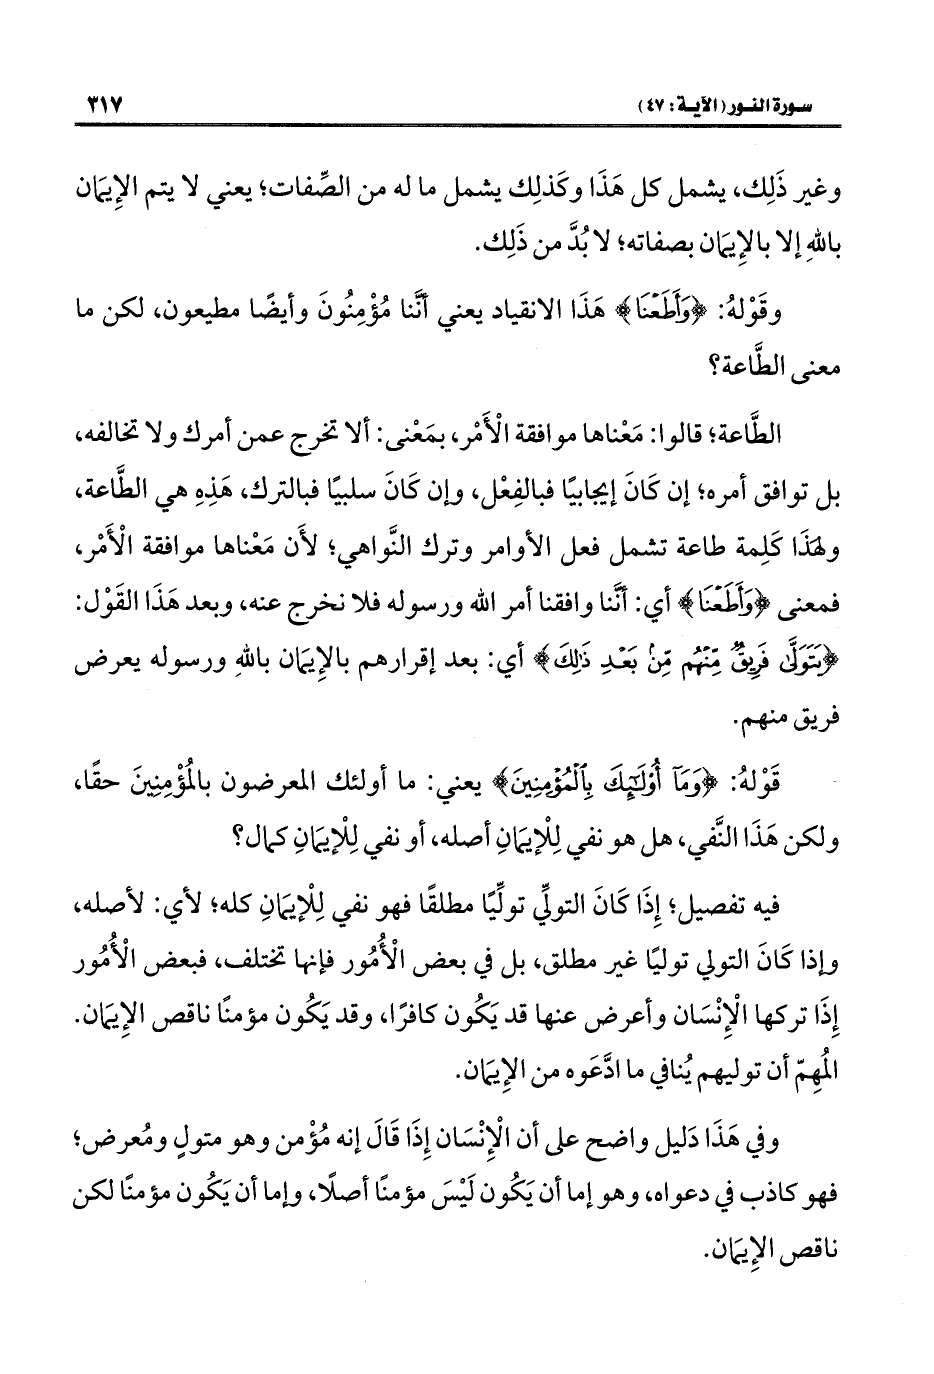 سورة النور (الآية: ٤٧) ٣١٧
وغير ذَلِك، يشمل كل هَذَا وكَذلِك يشمل ما له من الصِّفات؛ يعني لا يتم الإِيمَان
باللهِ إلا بالإِيمَان بصفاته؛ لا بُدَّ من ذَلِك.
وقَوْلهُ: ﴿وَأَطَعْنَا﴾ هَذَا الانقياد يعني أنَّنا مُؤْمِنُونَ وأيضًا مطيعون، لكن ما
معنى الطَّاعة؟
الطَّاعة؛ قالوا: مَعْناها موافقة الْأَمْر، بمَعْنى: ألا تخرج عمن أمرك ولا تخالفه،
بل توافق أمره؛ إن كَانَ إيجابيًا فبالفِعْل، وإن كَانَ سلبيًا فبالترك، هَذِهِ هي الطَّاعة،
ولهَذَا كَلِمة طاعة تشمل فعل الأوامر وترك النَّواهي؛ لأن مَعْناها موافقة الْأَمْر،
فمعنى ﴿وَأَطَعْنَا﴾ أي: أنَّنا وافقنا أمر الله ورسوله فلا نخرج عنه، وبعد هَذَا القَوْل:
﴿يَتَوَلَّى فَرِيقٌ مِّنْهُم مِّنۢ بَعْدِ ذَٰلِكَ﴾ أي: بعد إقرارهم بالإِيمَان باللهِ ورسوله يعرض
فريق منهم.
قَوْلهُ: ﴿وَمَآ أُوْلَٰٓئِكَ بِالْمُؤْمِنِينَ﴾ يعني: ما أولئك المعرضون بالمُؤْمِنِينَ حقًا،
ولكن هَذَا النَّفي، هل هو نفي لِلْإِيمَانِ أصله، أو نفي لِلْإِيمَانِ كمال؟
فيه تفصيل؛ إِذَا كَانَ التولِّي تولِّيًا مطلقًا فهو نفي لِلْإِيمَانِ كله؛ لأي: لأصله،
وإذا كَانَ التولي توليًا غير مطلق، بل في بعض الْأُمُور فإنها تختلف، فبعض الْأُمُور
إِذَا تركها الْإِنْسَان وأعرض عنها قد يَكُون كافرًا، وقد يَكُون مؤمنًا ناقص الإِيمَان.
المُهِمّ أن توليهم يُنافي ما ادَّعَوه من الإِيمَان.
وفي هَذَا دَليل واضح على أن الْإِنْسَان إِذَا قَالَ إنه مُؤْمن وهو متولٍ ومُعرض؛
فهو كاذب في دعواه، وهو إما أن يَكُون لَيْسَ مؤمنًا أصلًا، وإما أن يَكُون مؤمنًا لكن
ناقص الإِيمَان.